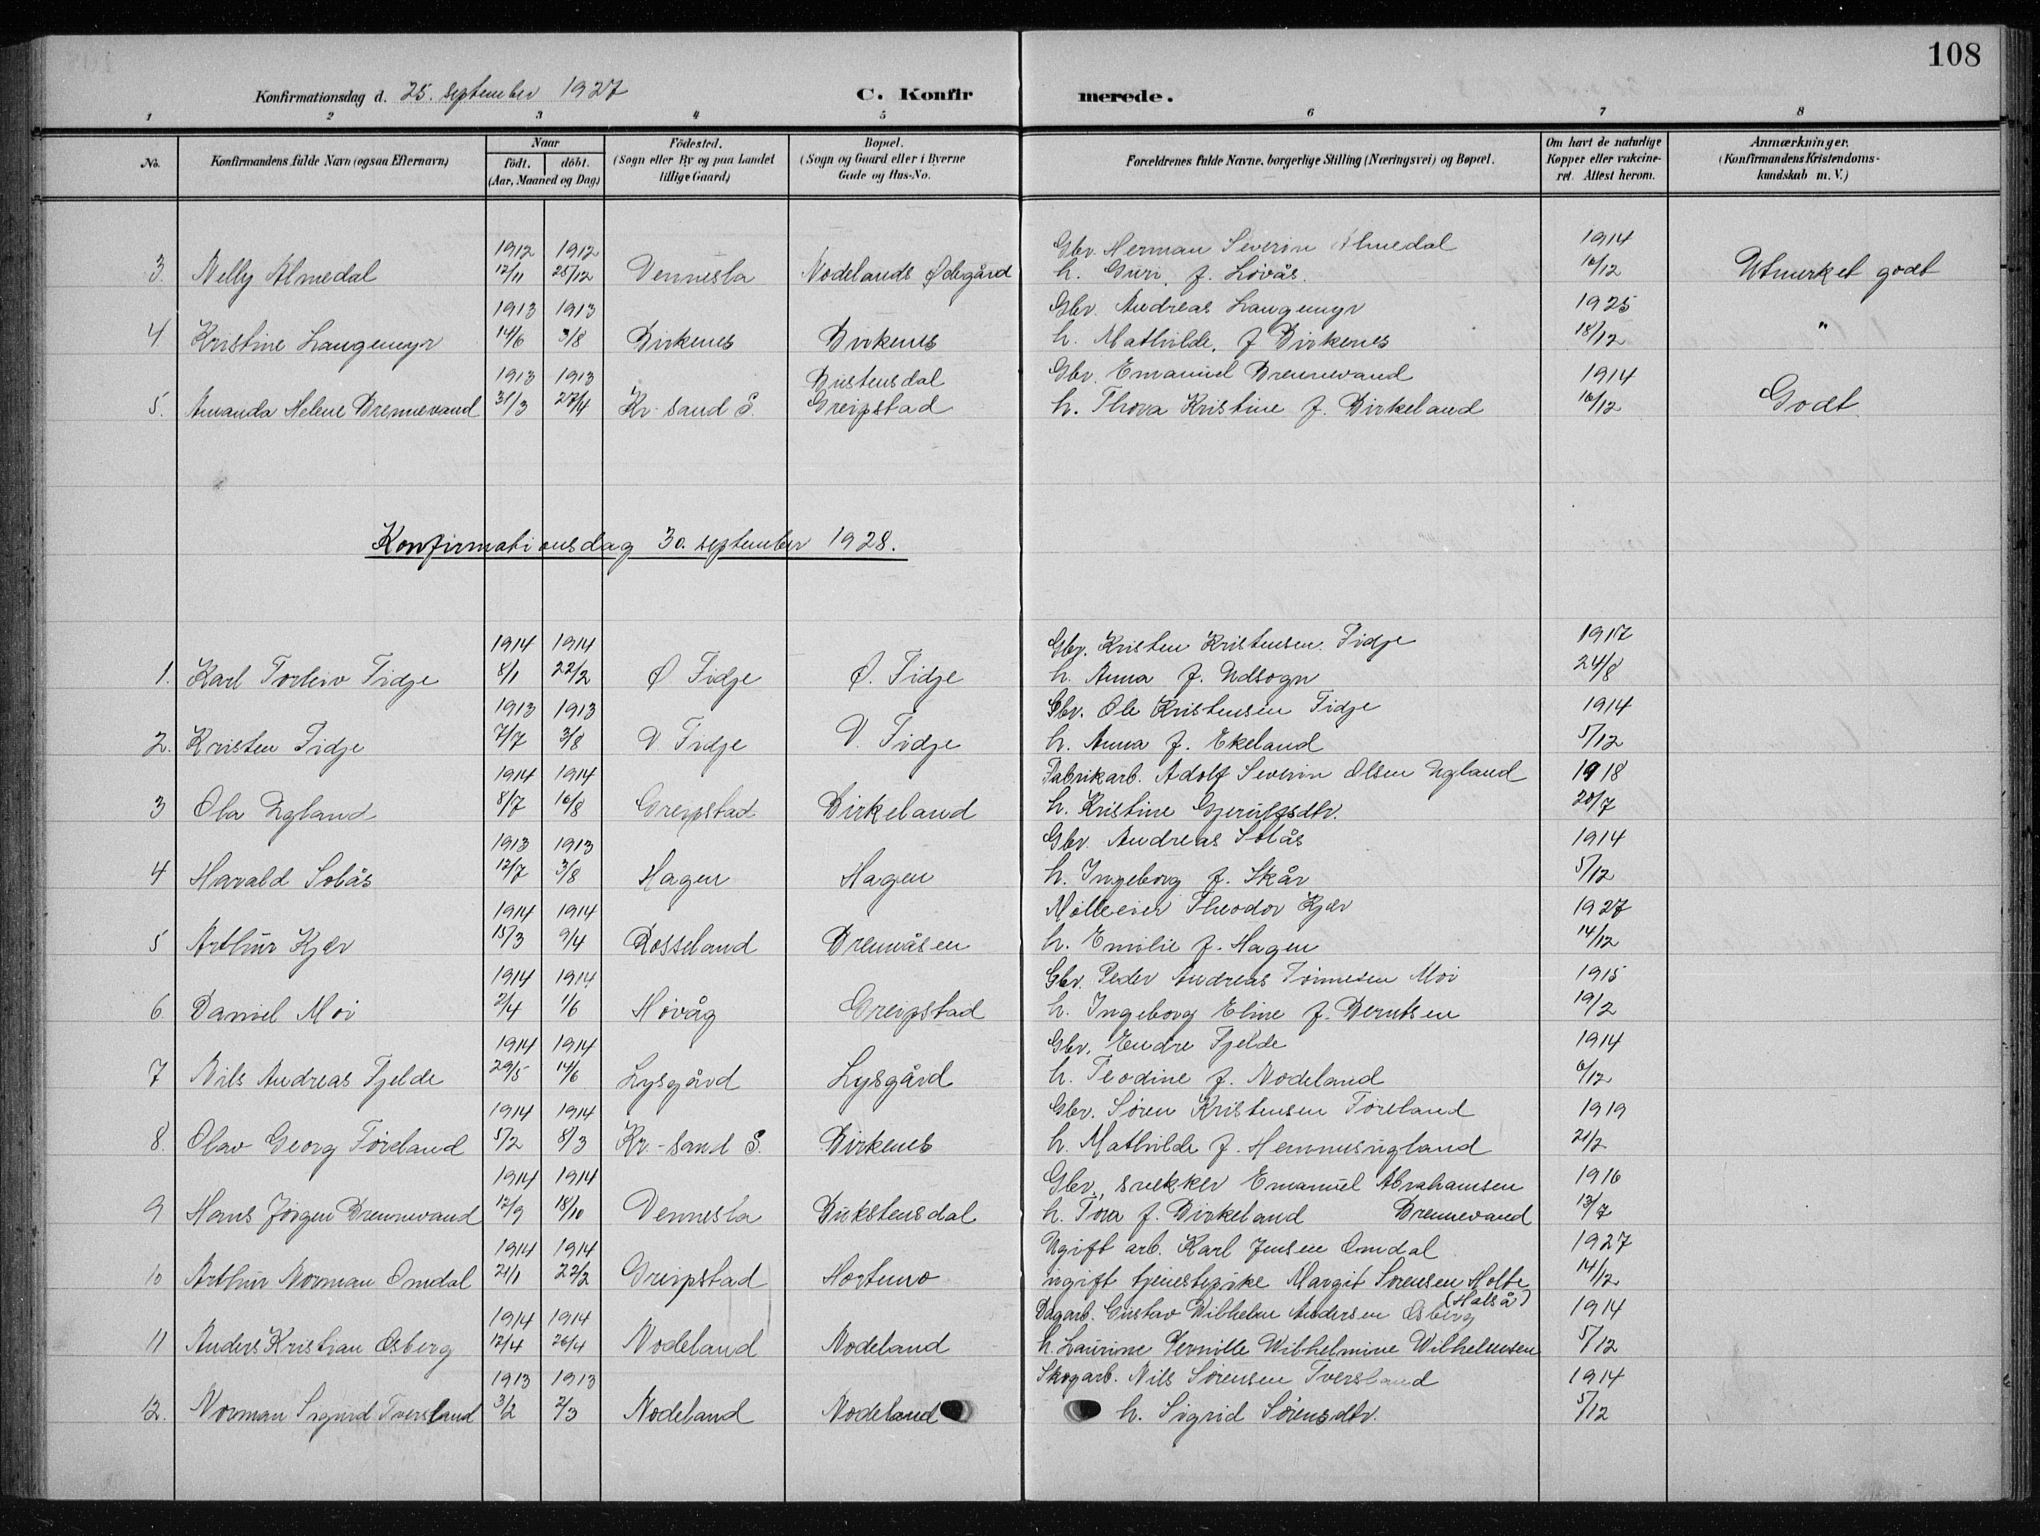 108
Konfirmationsdag d. 25. september 1927 C. Konfirmerede.
1 2 3 4 5 6 7 8
No. Konfirmandens fulde Navn (ogsaa Efternavn) Naar født. døbt. (Aar, Maaned og Dag) Fødested. (Sogn eller By og paa Landet tillige Gaard) Bopæl. (Sogn og Gaard eller i Byerne Gade og Hus-No. Forældrenes fulde Navne, borgerlige Stilling (Næringsvei) og Bopæl. Om havt de naturlige Kopper eller vakcineret. Attest herom. Anmærkninger. (Konfirmandens Kristendomskundskab m. V.)
1912 1912 Gbr. Herman Severin Almedal 1914
3. Nelly Almedal 12/11 25/12 Vennesla Nodelands Ødegård h. Guri f. Løvås. 10/12 Utmerket godt
1913 1913 Gbr. Andreas Langemyr 1925
4. Kristine Langemyr 14/6 3/8 Birkenes Birkenes h. Mathilde, f Birkenes 18/12 "
1913 1913 Gbr. Emanuel Brennevand 1914
5. Amanda Helene Brennevand 31/3 27/4 Kr-sand S. Greipstad h. Thora Kristine f. Birkeland 10/12 Godt.
Konfirmationsdag 30. september 1928.
1914 1914 Gbr. Kristen Kristensen Tidje 1917
1. Karl Torleiv Tidje 8/1 22/2 Ø Tidje Ø. Tidje h. Anna f. Udsogn 24/8
1913 1913 Gbr. Ole Kristensen Tidje 1914
2. Kristen Tidje 7/7 3/8 V. Tidje V. Tidje h. Anna f. Ekeland 5/12
1914 1914 Fabrikarb. Adolf Severin Olsen Ugland 1918
3 Ola Ugland 8/7 16/8 Greipstad Birkeland h. Kristine Gjerulfsdtr. 20/7
1913 1913 Gbr. Andreas Solås 1914
4 Harald Solås 12/7 3/8 Hagen Hagen h. Ingeborg f. Skår 5/12
1914 1914 Mølleeier Theodor Kjær 1927
5 Arthur Kjær 15/3 9/4 Rosseland Brennåsen h. Emilie f. Hagen 14/12
1914 1914 Gbr. Peder Andreas Tønnesen Moi 1915
6 Daniel Moi 2/4 1/6 Høvåg Greipstad h. Ingeborg Eline f. Berntsen 19/2
1914 1914 Gbr. Endre Fjelde 1914
7 Nils Andreas Fjelde 29/5 14/6 Lysgård Lysgård h. Teodine f. Nodeland
1914 1914 Gbr. Søren Kristensen Føreland 1919
8. Olav Georg Føreland 5/2 8/3 Kr-sand S. Birkenes h. Mathilde f. Hemmesugland 21/2
1914 1914 Gbr., snekker Emanuel Abrahamsen 1916
9 Hans Jørgen Brennevand 12/9 18/10 Vennesla Bukstensdal h. Tora f. Birkeland Brennevand 13/7
1914 1914 Ugift arb. Karl Jensen Omdal 1927
10 Arthur Norman Omdal 21/1 22/2 Greipstad Hortemo ugift tjenestepike Margit Sørensen Holte 14/12
(Halså)
1914 1914 Dagarb. Gustav Wilhelm Andersen Osberg 1914
11 Anders Kristian Osberg 12/4 26/4 Nodeland Nodeland h. Laurine Pernille Wilhelmine Wilhelmsen 5/12
1913 1913 Skogarb. Nils Sørensen Tversland 1914
12. Norman Sigurd Tversland 3/2 2/3 Nodeland Nodeland h. Sigrid Sørensdtr. 5/12